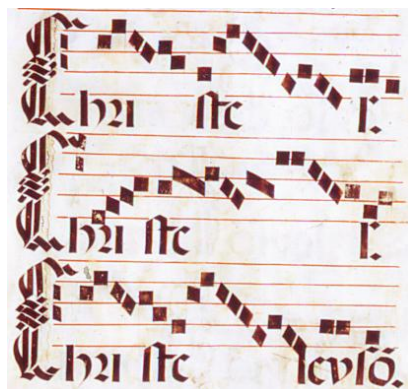 Chri ste
Chri ste
Chri ste leysō.